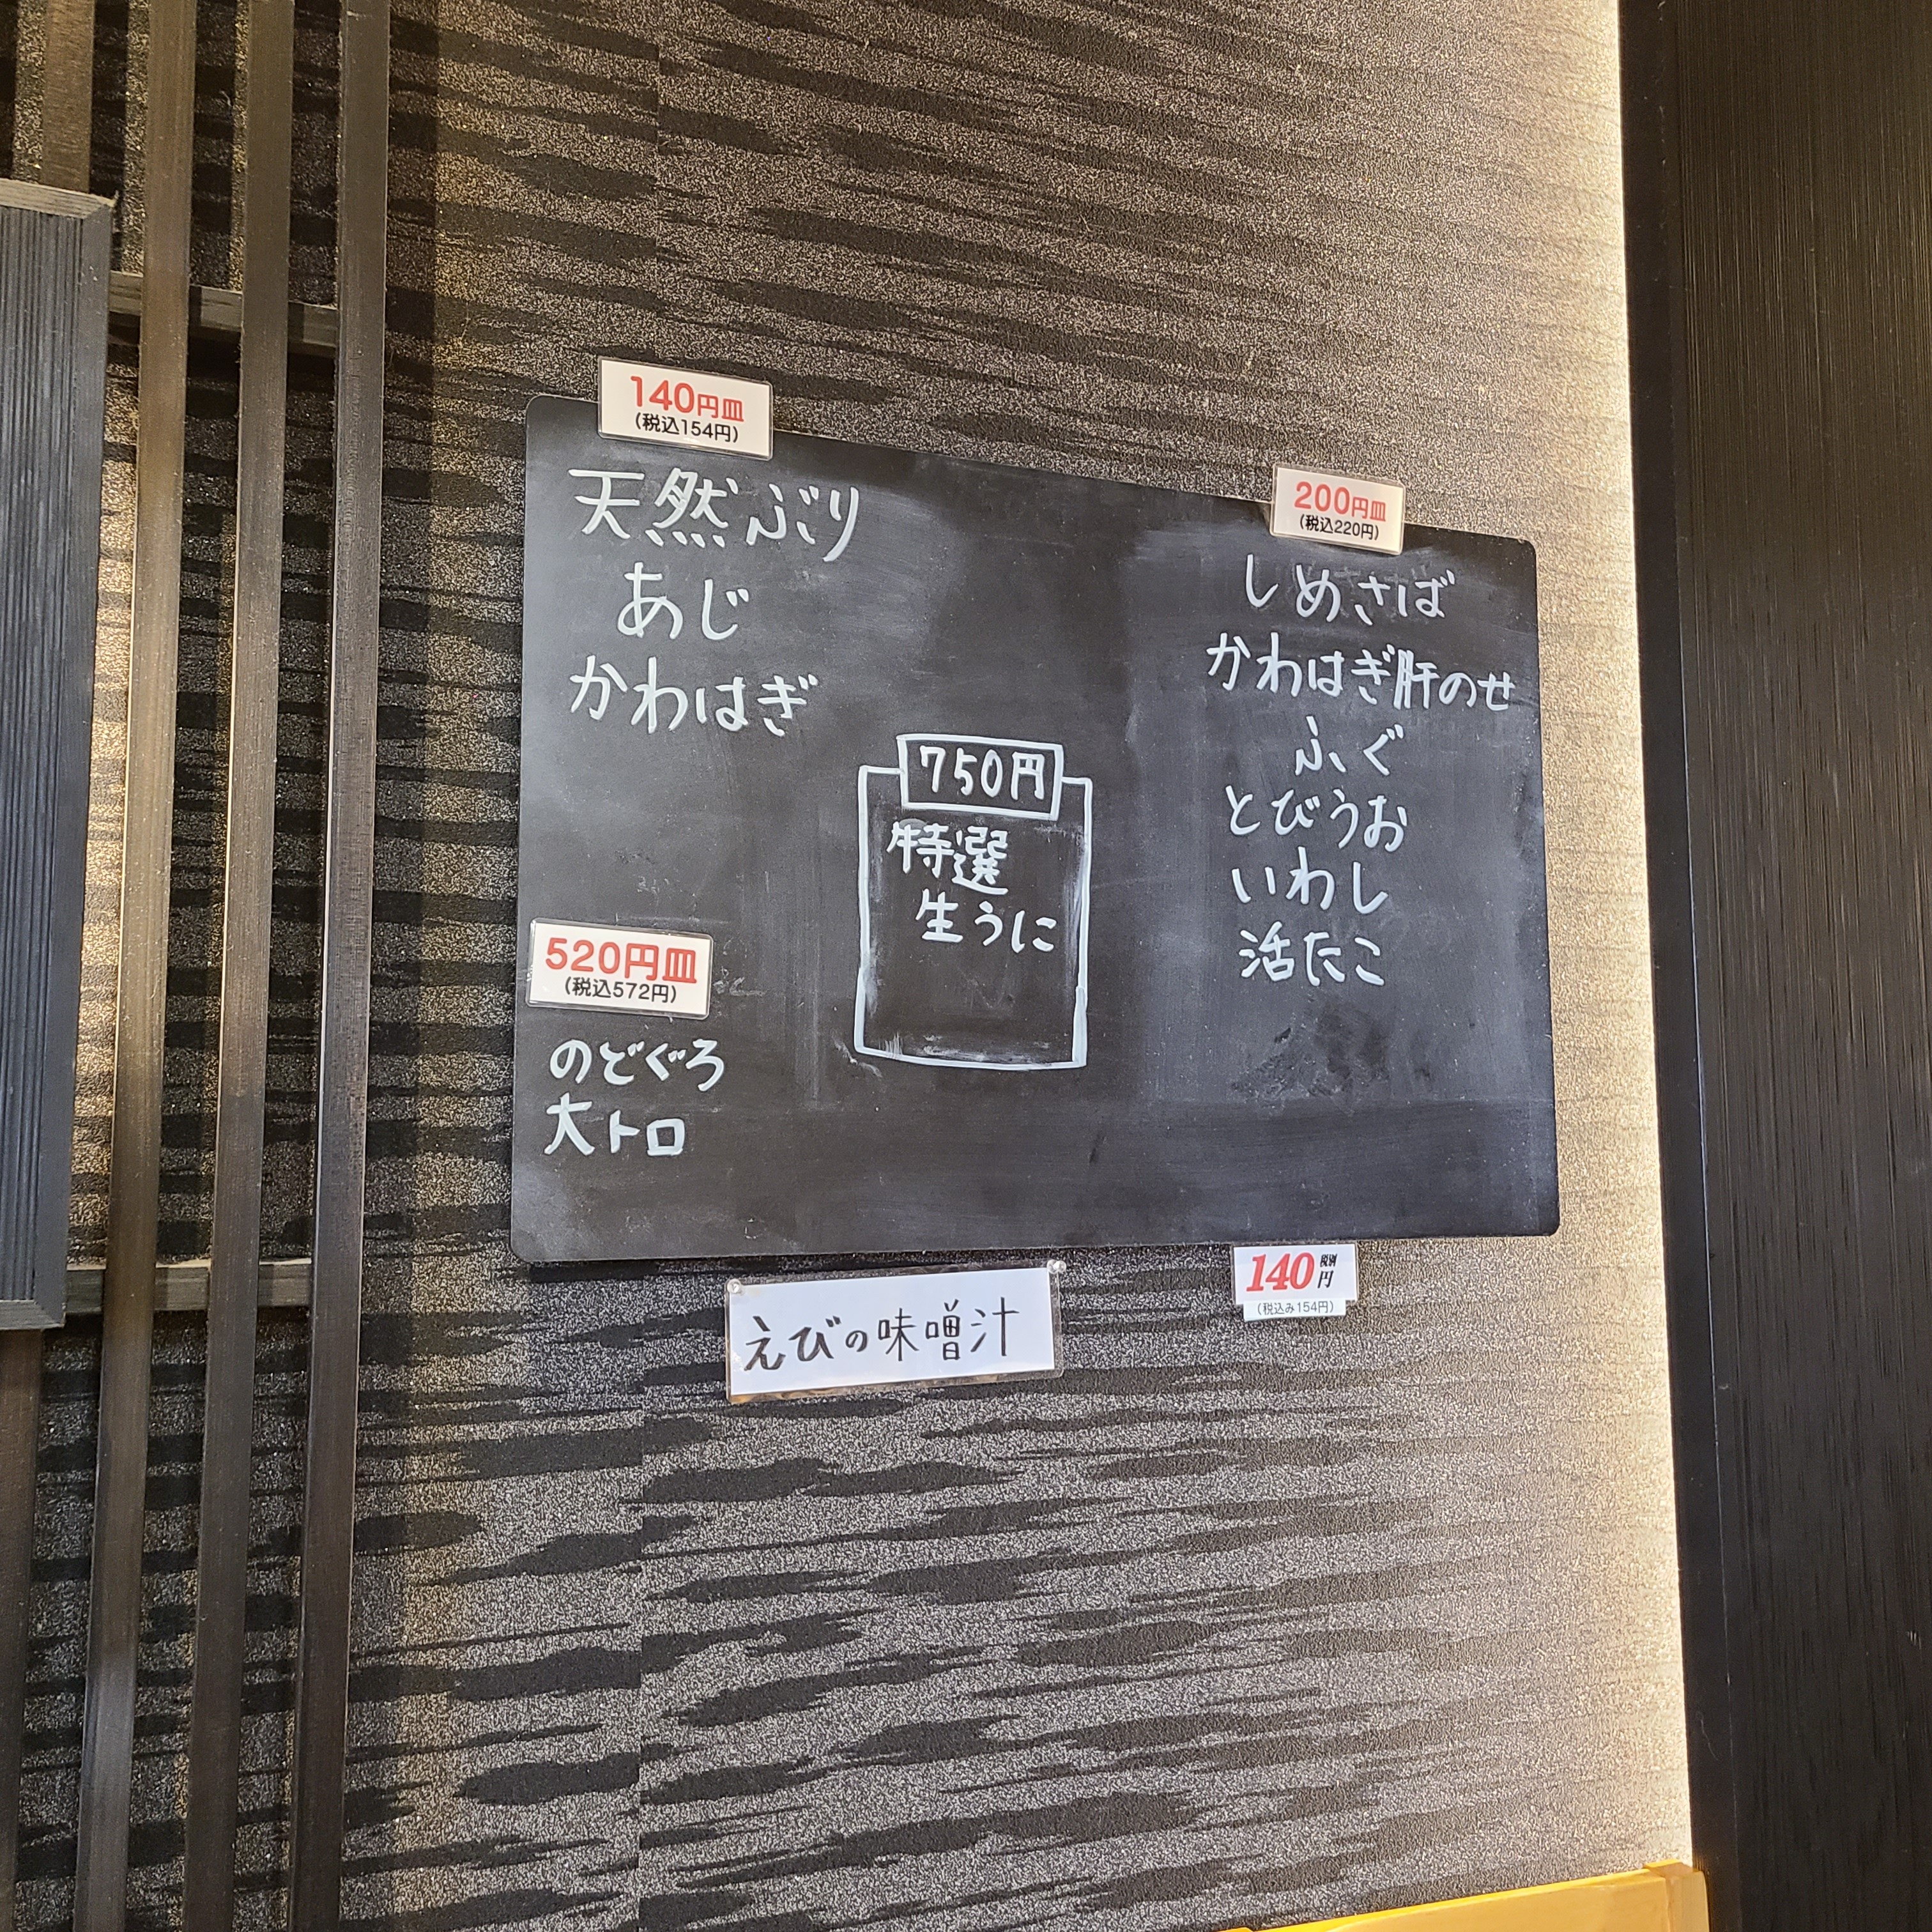 140円皿
(税込154円)
天然ぶり
あじ
かわはぎ
520円皿
(税込572円)
のどぐろ
大トロ
750円
特選
生うに
200円皿
(税込220円)
しめさば
かわはぎ肝のせ
ふぐ
とびうお
いわし
活たこ
えびの味噌汁
140税別円
(税込み154円)